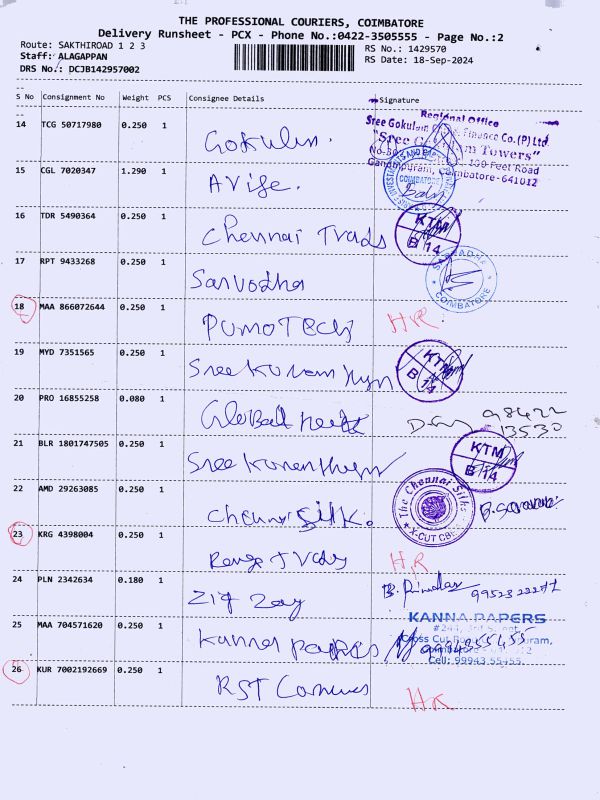 THE PROFESSIONAL COURIERS, COIMBATORE
Delivery Runsheet - PCX - Phone No.:0422-3505555 - Page No.:2
Route: SAKTHIROAD 1 2 3
RS No.: 1429570
Staff: ALAGAPPAN
RS Date: 18-Sep-2024
DRS No.: DCJB142957002
S No Consignment No Weight PCS Consignee Details Signature
Regional Office
Sree Gokulam Finance Co.(P) Ltd.
"Sree Gokulam Towers"
100 Feet Road
Gandhipuram, Coimbatore-641012
14 TCG 50717980 0.250 1 Gokulm.
COIMBATORE
15 CGL 7020347 1.290 1
16 TDR 5490364 0.250 1 Chennai Trads KTM B 14
17 RPT 9433268 0.250 1 Sarvodha COIMBATORE
18 MAA 866072644 0.250 1 PumoTech HR
19 MYD 7351565 0.250 1 KTM B 14
20 PRO 16855258 0.080 1 Global 98422 13530
21 BLR 1801747505 0.250 1 KTM B 14
22 AMD 29263085 0.250 1 Chennai Silk. The Chennai Silks X-CUT CBE
23 KRG 4398004 0.250 1 HR
24 PLN 2342634 0.180 1 Zig Zag
25 MAA 704571620 0.250 1 Kanna Papers
KANNA PAPERS
Cell: 99943 55455
26 KUR 7002192669 0.250 1 RST HR